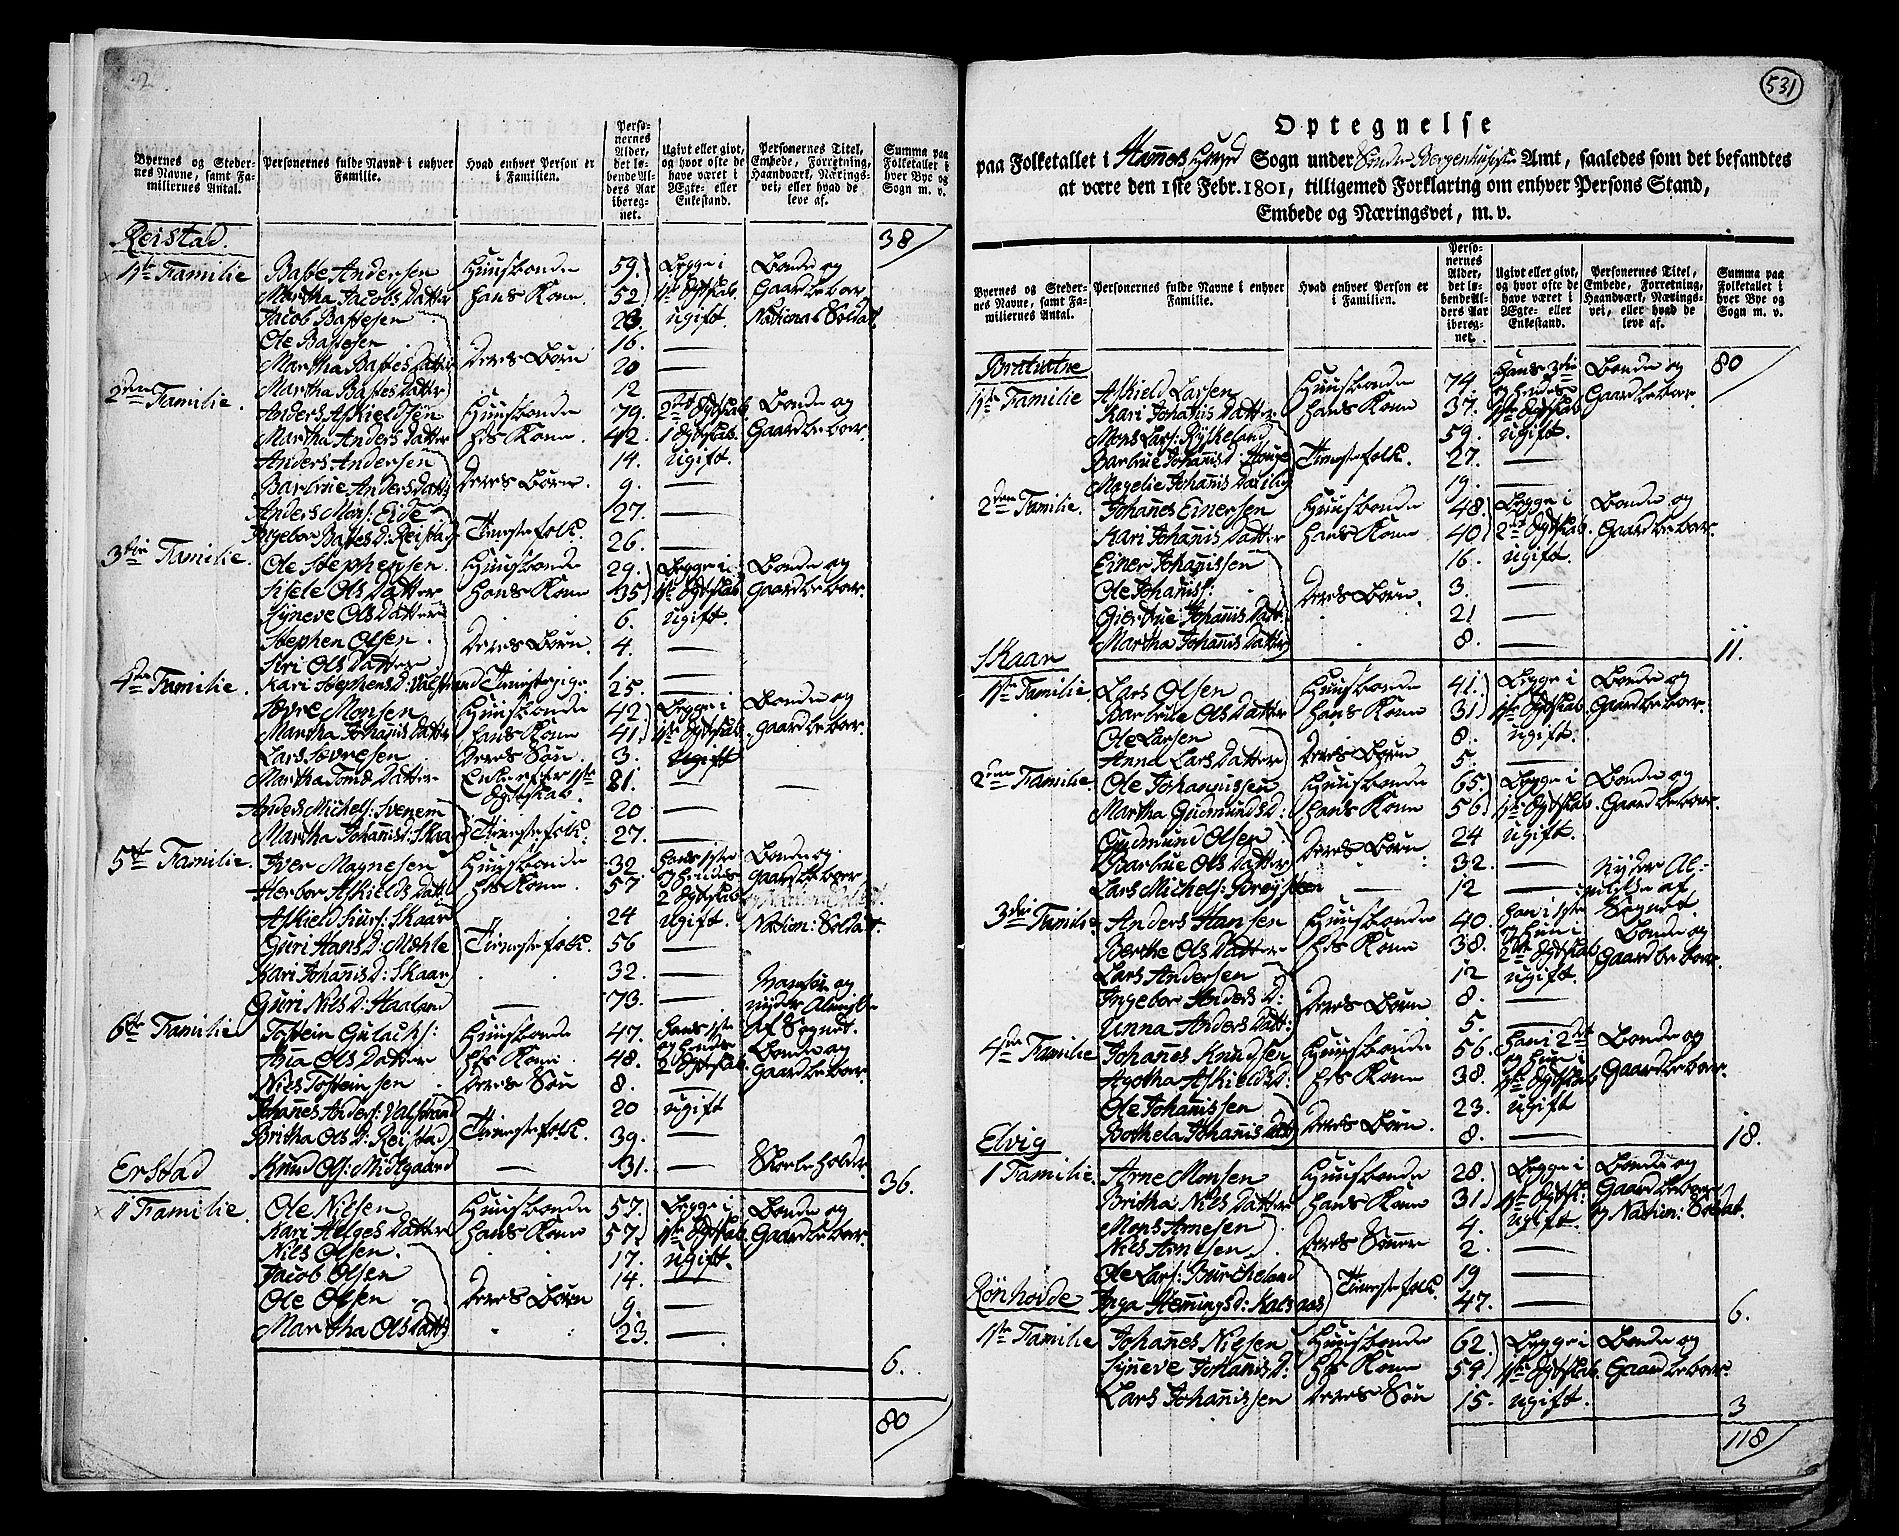 2
Byernes og Stedernes Navne, samt Familiernes Antal.
Personernes fulde Navne i enhver Familie.
Hvad enhver Person er i Familien.
Personernes Alder, det løbende Alders Aar iberegnet.
Ugivt eller givt, og hvor ofte de have været i Ægte- eller Enkestand.
Personernes Titel, Embede, Forretning, Haandværk, Næringsvei, eller hvad de leve af.
Summa paa Folketallet i hver Bye og Sogn m. v.
Reistad. 38
1ste Familie Basse Andersen Huusbonde 59. Begge i Bonde og
Martha Jacobs Datter Hans Kone 52. 1ste Ægteskab. Gaardbeboer
Jacob Bassesen 23. ugift. National Soldat.
Ole Bassesen 16. —
Martha Basses Datter Deres Børn 20 —
Martha Basses Datter 12
2den Familie. Anders Askieldsen Huusbonde 79. 2det Ægteskab Bonde og
Martha Anders Datter Hs Kone. 42. 1 Ægteskab. Gaardbeboer
Anders Andersen 14. ugift.
Barbrue Anders Datter Deres Børn. 9. —
Anders Mons: Eide 27. —
Ingebor Basses D: Reistad Tienestefolk. 26. —
3die Familie. Ole Stephensen Huusbonde 29. Begge i Bonde og
Sisele Ols Datter Hans Kone 35 1ste Ægteskab Gaardbeboer.
Syneve Ols Datter 6. ugift.
Stephen Olsen Deres Børn. 4. —
Siri Ols Datter 1. —
4de Familie. Kari Stephens D: Valstrand Tienestepige 25. —
Sevre Monsen Huusbonde 42. Begge i Bonde og
Martha Johannis Datter Hans Kone 41. 1ste Ægteskab. Gaardbeboer.
Lars Sevresen Deres Søn. 3. ugift
Martha Tomæ Datter Enke efter 1ste Ægteskab. 81. — —
Anders Michels: Svenem 20 —
Martha Johannis D: Skaar Tienestefolk. 27. —
5te Familie. Iver Magnesen Huusbonde 32. hans 1ste Bonde og
Herbor Askields Datter Hs Kone. 57 og hendes 2 Ægteskab Gaardbeboer
Askield Siurs: Skaar 24 ugift. Nation: Soldat.
Guri Hans D: Mæhle Tienestefolk. 56 —
Kari Johannis D: Skaar 32. —
Guri Niels D: Haaland — 73. — Vanfør og nyder Almisse af Sognet.
6te Familie Tostein Gulachs: Huusbonde 47. hans 1ste Bonde og
Ania Ols Datter Hs Kone. 48. og hendes 2 Ægteskab. Gaardbeboer.
Niels Tosteinsen Deres Søn 8. —
Johannes Anders: Valstrand 20 ugift
Britha Ols D: Reistad Tienestefolk. 39. —
Knud Ols: Midtgaard — 31. — Skoleholder
Erstad 36.
1 Familie. Ole Nilsen Huusbonde 57. Begge i Bonde og
Kari Helges Datter Hans Kone 57. 1ste Ægteskab. Gaardbeboer.
Nils Olsen 17. ugift.
Jacob Olsen 14. —
Ole Olsen Deres Børn 9. —
Martha Ols Datter 23. —
6.
80
531
Optegnelse
paa Folketallet i Hammers Sogn under Sønder Bergenhusiske Amt, saaledes som det befandtes
at være den 1ste Febr. 1801, tilligemed Forklaring om enhver Persons Stand,
Embede og Næringsvei, m. v.
Byernes og Stedernes Navne, samt Familiernes Antal.
Personernes fulde Navne i enhver Familie.
Hvad enhver Person er i Familien.
Personernes Alder, det løbende Alders Aar iberegnet.
Ugivt eller givt, og hvor ofte de have været i Ægte- eller Enkestand.
Personernes Titel, Embede, Forretning, Haandværk, Næringsvei, eller hvad de leve af.
Summa paa Folketallet i hver Bye og Sogn m. v.
80
1ste Familie Askield Larsen Huusbonde 74. Hans 3die Bonde og
Kari Johannis Datter Hans Kone 37. og hendes 1ste Ægteskab Gaardbeboer.
Mons Lars: Ryskeland 59. ugift.
Barbrue Johannis D: Houge Tienestefolk. 27. —
Magelie Johannis D: 19. —
2den Familie. Johannes Einersen Huusbonde 48. Begge i Bonde og
Kari Johannis Datter Hans Kone 40 2det Ægteskab. Gaardbeboer.
Einer Johannissen 16. ugift.
Ole Johannis: Deres Børn. 3. —
Giertrue Johannis Datt: 21 —
Martha Johannis Datter 8. —
Skaar 11.
1ste Familie. Lars Olsen Huusbonde 41. Begge i Bonde og
Barbrue Ols Datter Hans Kone 31 1ste Ægteskab. Gaardbeboer.
Ole Larsen 8. ugift.
Anna Lars Datter Deres Børn 5. —
2den Familie. Ole Johannissen Huusbonde 65. Begge i Bonde og
Martha Gudmunds D: Hans Kone 56 1ste Ægteskab. Gaardbeboer.
Gudmund Olsen 24 ugift.
Barbrue Ols Datter Deres Børn 32. —
Lars Michels: — 12 — Nyder Almisse af Sognet.
3die Familie. Anders Hansen Huusbonde 40. Han i 1ste Bonde og
Berthe Ols Datter Hs Kone 38. og hun i 2det Ægteskab Gaardbeboer.
Lars Andersen 12 ugift.
Ingebor Anders D: Deres Børn. 8. —
Anna Anders Datt: 5. —
4de Familie Johannes Knudsen Huusbonde 56. Han i 2det Bonde og
Agotha Askields D: Hs Kone 38. og hun i 1ste Ægteskab Gaardbeboer.
Ole Johannissen 23. ugift
Bothela Johannis Datt: Deres Børn. 8. —
Elvig 18.
1 Familie. Arne Monsen Huusbonde 28. Begge i Bonde og
Britha Niels Datter Hans Kone 31. 1ste Ægtesk: Gaardbeboer
Mons Arnesen 4. ugift. og Nation: Soldat.
Niels Arnesen Deres Sønner 2. —
Ole Lars: Burkeland Tienestefolk. 19 —
Inga Hemmings D: Kalsaas 47. —
Rønhovde 6.
1ste Familie Johannes Nielsen Huusbonde 62. Begge i Bonde og
Syneve Johannis D: Hs Kone 59. 1ste Ægteskab. Gaardbeboer.
Lars Johannissen Deres Søn 15. ugift.
3
118